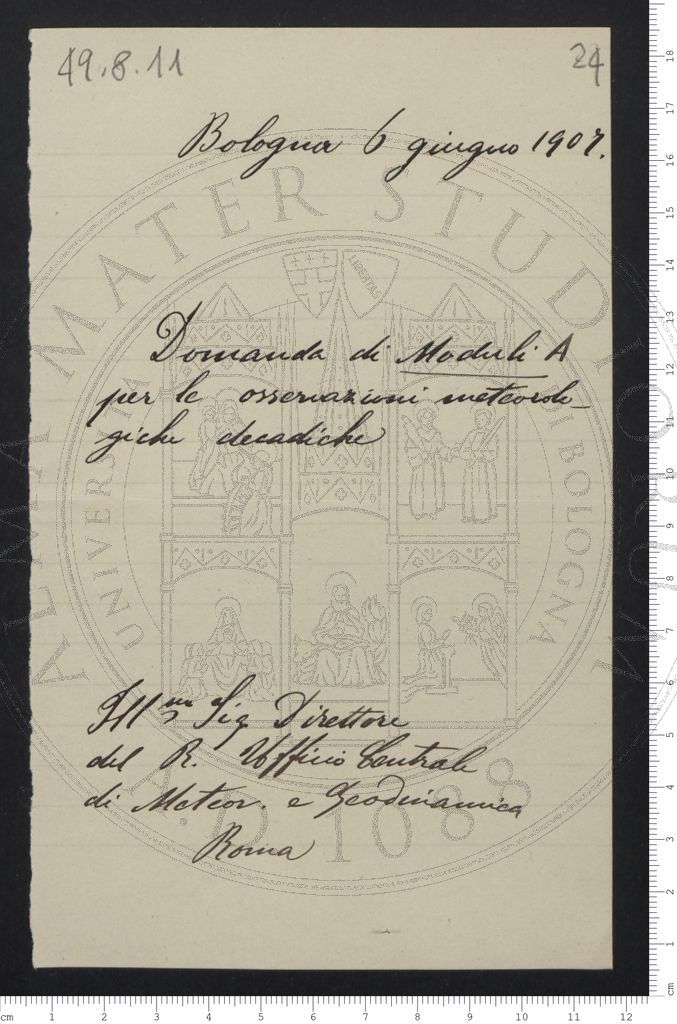 49.8.11
24
Bologna 6 giugno 1907.
Domanda di Moduli A
per le osservazioni meteorolo-
giche decadiche
Ill.mo Sig Direttore
del R. Ufficio Centrale
di Meteor. e Geodinamica
Roma
ALMA MATER STUDIORUM
A.D. 1088
UNIVERSITÀ DI BOLOGNA
LIBERTAS
cm 1 2 3 4 5 6 7 8 9 10 11 12
cm 1 2 3 4 5 6 7 8 9 10 11 12 13 14 15 16 17 18